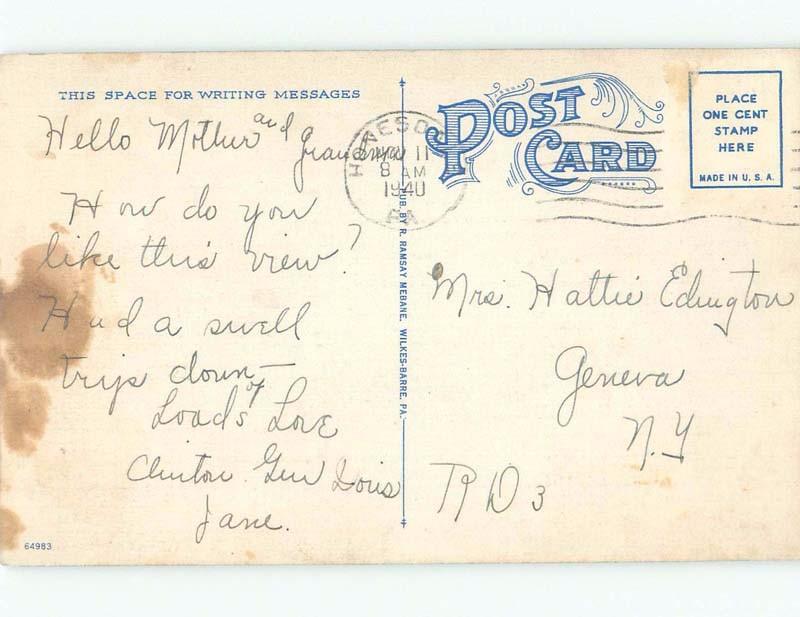 THIS SPACE FOR WRITING MESSAGES
Hello Mother and Grandma
How do you
like this view?
Had a swell
trip down—
Loads of Love
Clinton Gen Doris
Jane.
64983
PUB. BY R. RAMSAY MEBANE, WILKES-BARRE, PA.
HONESDALE
NOV 11
8 AM
1940
PA
POST CARD
PLACE
ONE CENT
STAMP
HERE
MADE IN U. S. A.
Mrs. Hattie Edington
Geneva
N.Y
R D 3